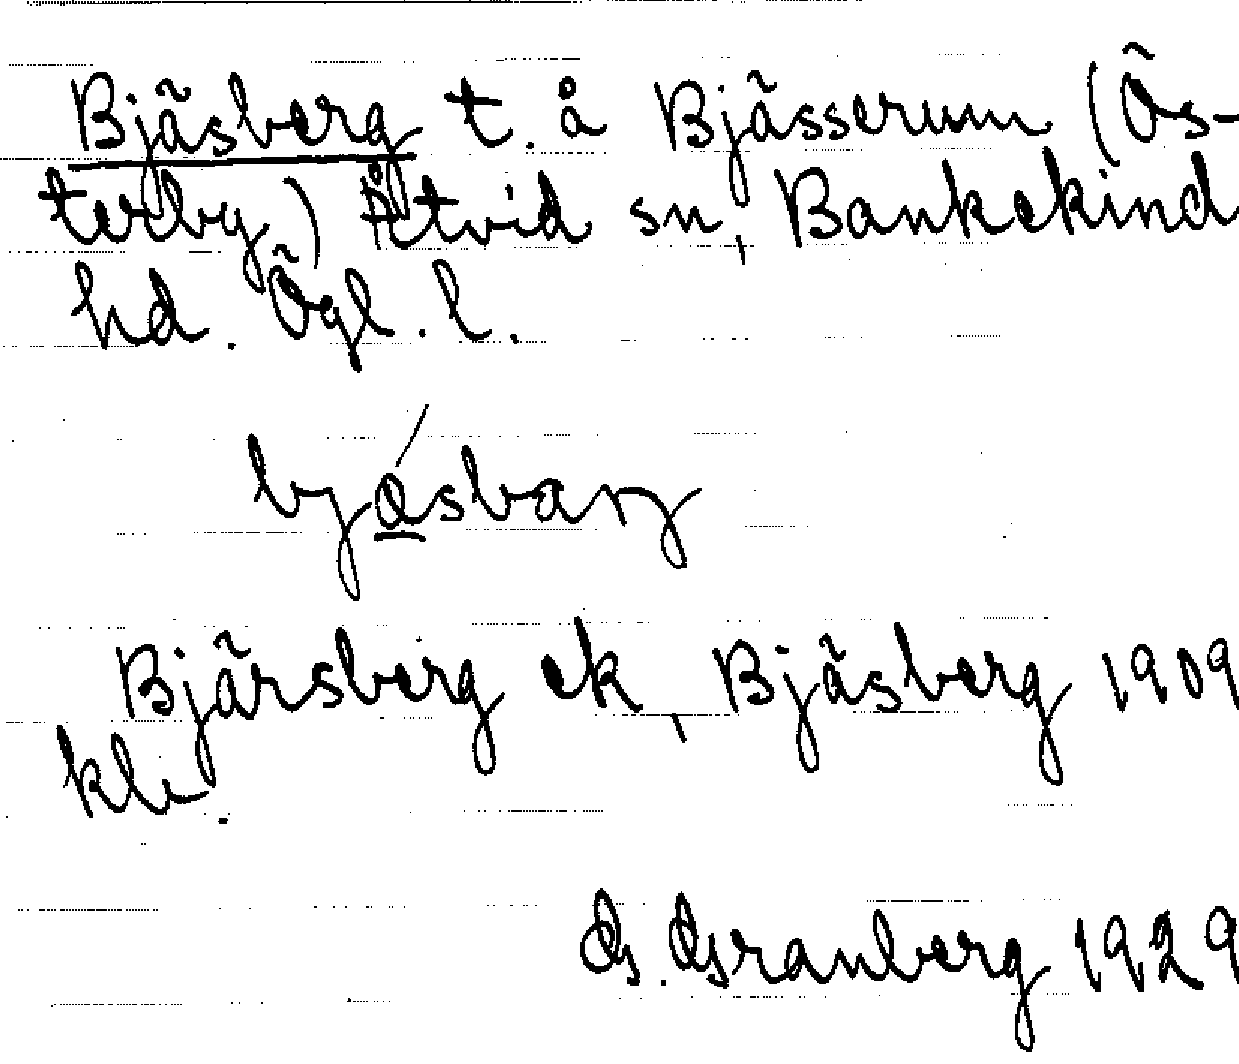 Bjäsberg t. å Bjässerum (Ös-
terby) Åtvid sn, Bankekind
hd. Ögl. l.
bjásbarg
Bjärsberg ek, Bjäsberg 1909
kl.
G. Granberg 1929